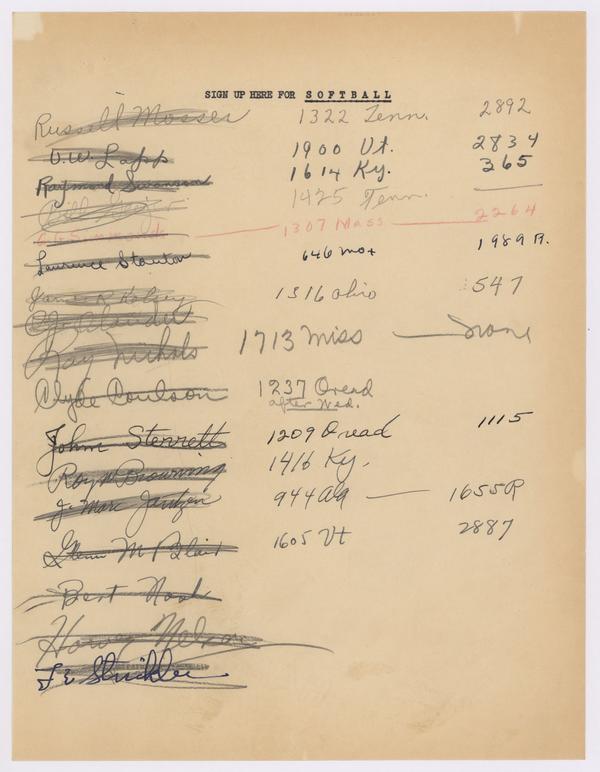 SIGN UP HERE FOR SOFTBALL
Russell Mosser 1322 Tenn. 2892
O.W. Lapp 1900 Vt. 2834
Raymond Swanson 1614 Ky. 365
Bill 1425 Tenn. —
Simmonds — 1307 Mass — 2264
Laurence Stanton 646 Mo 1989 R.
James R Kelsey 1316 Ohio 547
Ray Nichols 1713 Miss — None
Clyde Coulson 1237 Oread
after Wed.
John Sterrett 1209 Oread 1115
Roy W Browning 1416 Ky.
J. Marc Jantzen 944 Ala — 1655R
Glenn M Blair 1605 Vt 2887
Bert Nash
Harvey Nelson
Strickler